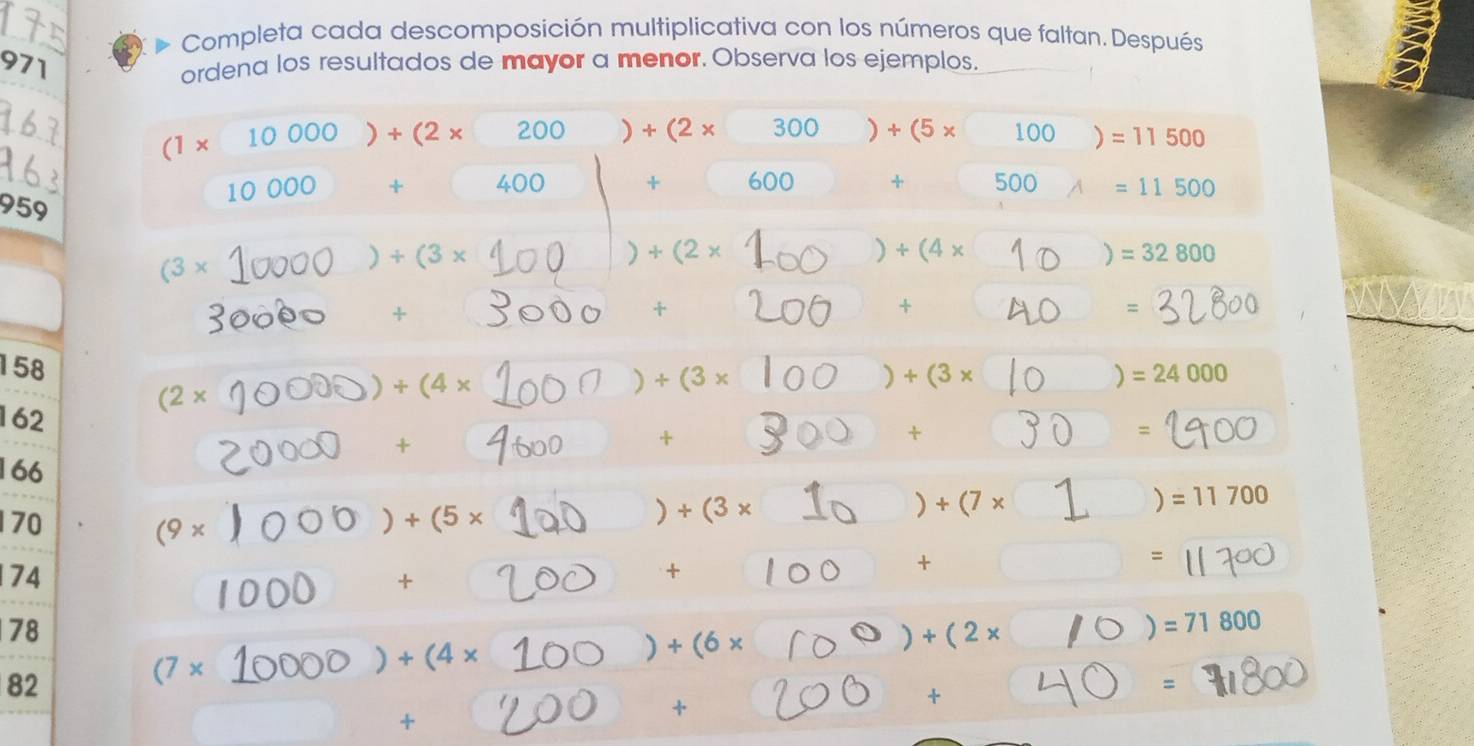 175
971
967
963
959
158
162
166
170
174
178
182
Completa cada descomposición multiplicativa con los números que faltan. Después
ordena los resultados de mayor a menor. Observa los ejemplos.
(1 × 10 000 ) + (2 × 200 ) + (2 × 300 ) + (5 × 100 ) = 11 500
10 000 + 400 + 600 + 500 = 11 500
(3 × 10000 ) + (3 × 100 ) + (2 × 100 ) + (4 × 10 ) = 32 800
30000 + 3000 + 200 + 40 = 32800
(2 × 10000 ) + (4 × 1000 ) + (3 × 100 ) + (3 × 10 ) = 24 000
20000 + 4000 + 300 + 30 = 2900
(9 × 1000 ) + (5 × 100 ) + (3 × 10 ) + (7 × 1 ) = 11 700
1000 + 200 + 100 + = 11700
(7 × 10000 ) + (4 × 100 ) + (6 × 100 ) + ( 2 × 10 ) = 71 800
+ 200 + 200 + 40 = 71800